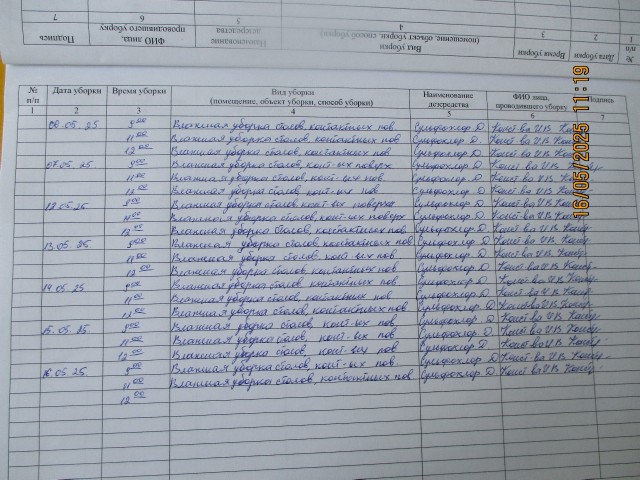 № п/п Дата уборки Время уборки Вид уборки (помещение, объект уборки, способ уборки) Наименование дезсредства ФИО лица, проводившего уборку Подпись
1 2 3 4 5 6 7
06.05.25 9 00 Влажная уборка столов, контактных пов. Сульфохлор Д
11 00 Влажная уборка столов, контактных пов Сульфохлор Д
12 00 Влажная уборка столов, контактных пов. Сульфохлор Д
07.05.25. 9 00 Влажная уборка столов, конт-ых поверх Сульфохлор Д
11 00 Влажная уборка столов, конт-ых пов. Сульфохлор Д
12 00 Влажная уборка столов, конт-ых пов. Сульфохлор Д
12.05.25 9 00 Влажная уборка столов, конт-ых поверхн Сульфохлор Д
11 00 Влажная уборка столов, конт-ых поверх Сульфохлор Д
12 00 Влажная уборка столов, контактных пов Сульфохлор Д
13.05.25 9 00 Влажная уборка столов, контактных пов Сульфохлор Д
11 00 Влажная уборка столов, конт-ых пов Сульфохлор Д
12 00 Влажная уборка столов, контактных пов. Сульфохлор Д
14.05.25 9 00 Влажная уборка столов, контактных пов Сульфохлор Д
11 00 Влажная уборка столов, контактных пов Сульфохлор Д
12 00 Влажная уборка столов, контактных пов Сульфохлор Д
15.05.25 9 00 Влажная уборка столов, конт-ых пов Сульфохлор Д
11 00 Влажная уборка столов, конт-ых пов Сульфохлор Д
12 00 Влажная уборка столов, конт-ых пов Сульфохлор Д
16.05.25 9 00 Влажная уборка столов, конт-ых пов. Сульфохлор Д
11 00 Влажная уборка столов, контактных пов Сульфохлор Д
12 00
№ п/п Дата уборки Время уборки Вид уборки (помещение, объект уборки, способ уборки) Наименование дезсредства ФИО лица, проводившего уборку Подпись
1 2 3 4 5 6 7
16/05/2025 11:19